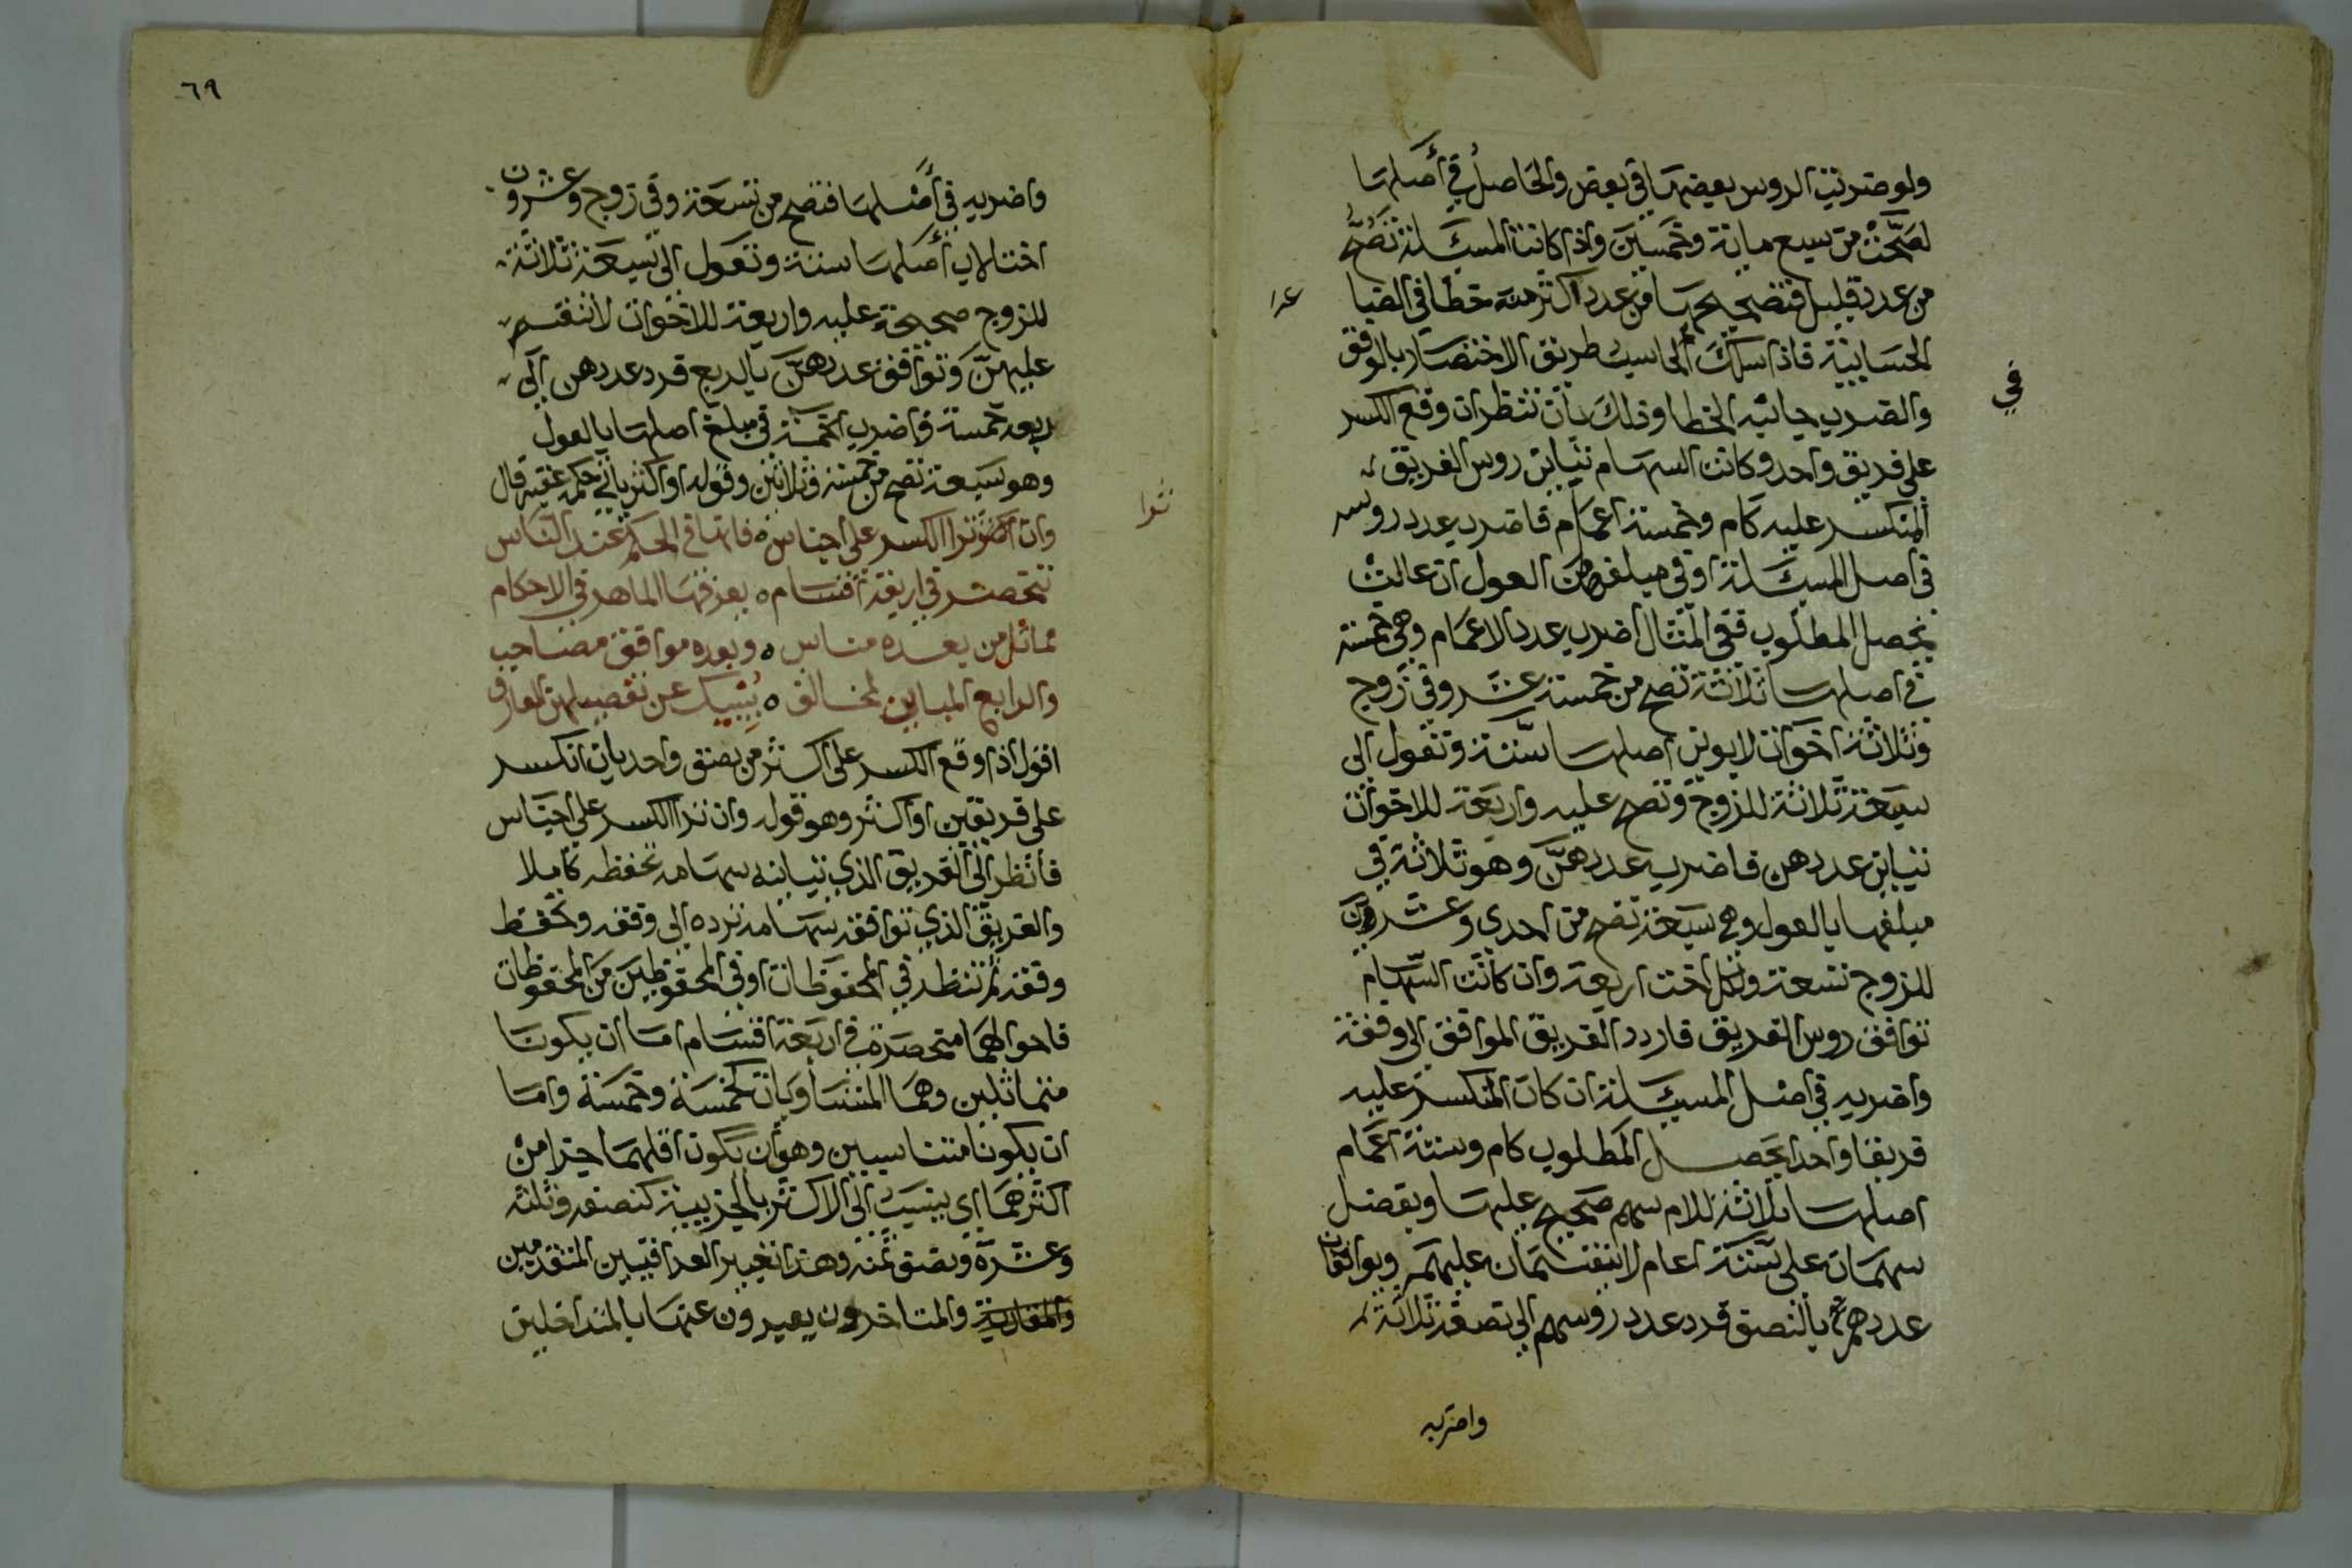 ولو ضربت الروس بعضها في بعض والحاصل في أصلها
لصحت من سبع مائة وخمسين واذا كانت المسئلة تصح
من عدد قليل فتصحيحها من عدد اكثر منه خطا في الصنا
عه
الحسابية فاذا سلك الحاسب طريق الاختصار بالوفق
في
والضرب جانبه الخطا وذلك بأن تنظر ان وقع الكسر
على فريق واحد وكانت السهام تباين روس الفريق
المنكسر عليه كام وخمسة اعمام فاضرب عدد روسه
في اصل المسئلة او في مبلغها من العول ان عالت
يحصل المطلوب ففي المثال اضرب عدد الاعمام وهي خمسة
في اصلها ثلاثة تصح من خمسة عشر وفي زوج
وثلاثة اخوات لابوين اصلها ستة وتعول الى
سبعة ثلاثة للزوج وتصح عليه واربعة للاخوات
تباين عددهن فاضرب عددهن وهو ثلاثة في
مبلغها بالعول وهي سبعة تصح من احدى وعشرين
للزوج تسعة ولكل اخت اربعة وان كانت السهام
توافق روس الفريق فاردد الفريق الموافق الى وفقه
واضربه في اصل المسئلة ان كان المنكسر عليه
فريقا واحدا يحصل المطلوب كام وستة اعمام
اصلها ثلاثة للام سهم صحيح عليها ويفضل
سهمان على ستة اعمام لا ينقسمان عليهم ويوافقان
عددهم بالنصف فرد عدد روسهم الى نصفه ثلاثة
واضربه
٦٩
واضربه في أصلها فتصح من تسعة وفي زوج وعشرون
اختا لاب أصلها ستة وتعول الى سبعة ثلاثة
للزوج صحيحة عليه واربعة للاخوات لا تنقسم
عليهن وتوافق عددهن بالربع فرد عددهن الى
ربعه خمسة واضرب الخمسة في مبلغ اصلها بالعول
وهو سبعة تصح من خمسة وثلاثين وقوله او اكثر ياتي حكمه عقبه قال
وان الكسر على اجناس ٥ فانها في الحكم عند الناس
ترا
تنحصر في اربعة اقسام ٥ يعرفها الماهر في الاحكام
مماثل من بعده مناسب ٥ وبعده موافق مصاحب
والرابع المباين المخالف ٥ ينبيك عن تفصيلهن العارف
اقول اذا وقع الكسر على اكثر من صنف واحد بان انكسر
على فريقين او اكثر وهو قوله وان ترا الكسر على اجناس
فانظر الى الفريق الذي تباينه سهامه تحفظه كاملا
والفريق الذي توافقه سهامه ترده الى وفقه وتحفظ
وفقه ثم تنظر في المحفوظات او في المحفوظين من المحفوظات
فاحوالهما منحصرة في اربعة اقسام اما ان يكونا
متماثلين وهما المتساويان كخمسة وخمسة واما
ان يكونا متناسبين وهو أن يكون اقلهما جزا من
اكثرهما اي ينسب الى الاكثر بالجزيية كنصفه وثلثه
وعشره ونصف ثمنه وهذا تعبير العراقيين المتقدمين
والمغاربة والمتاخرون يعبرون عنها بالمتداخلين